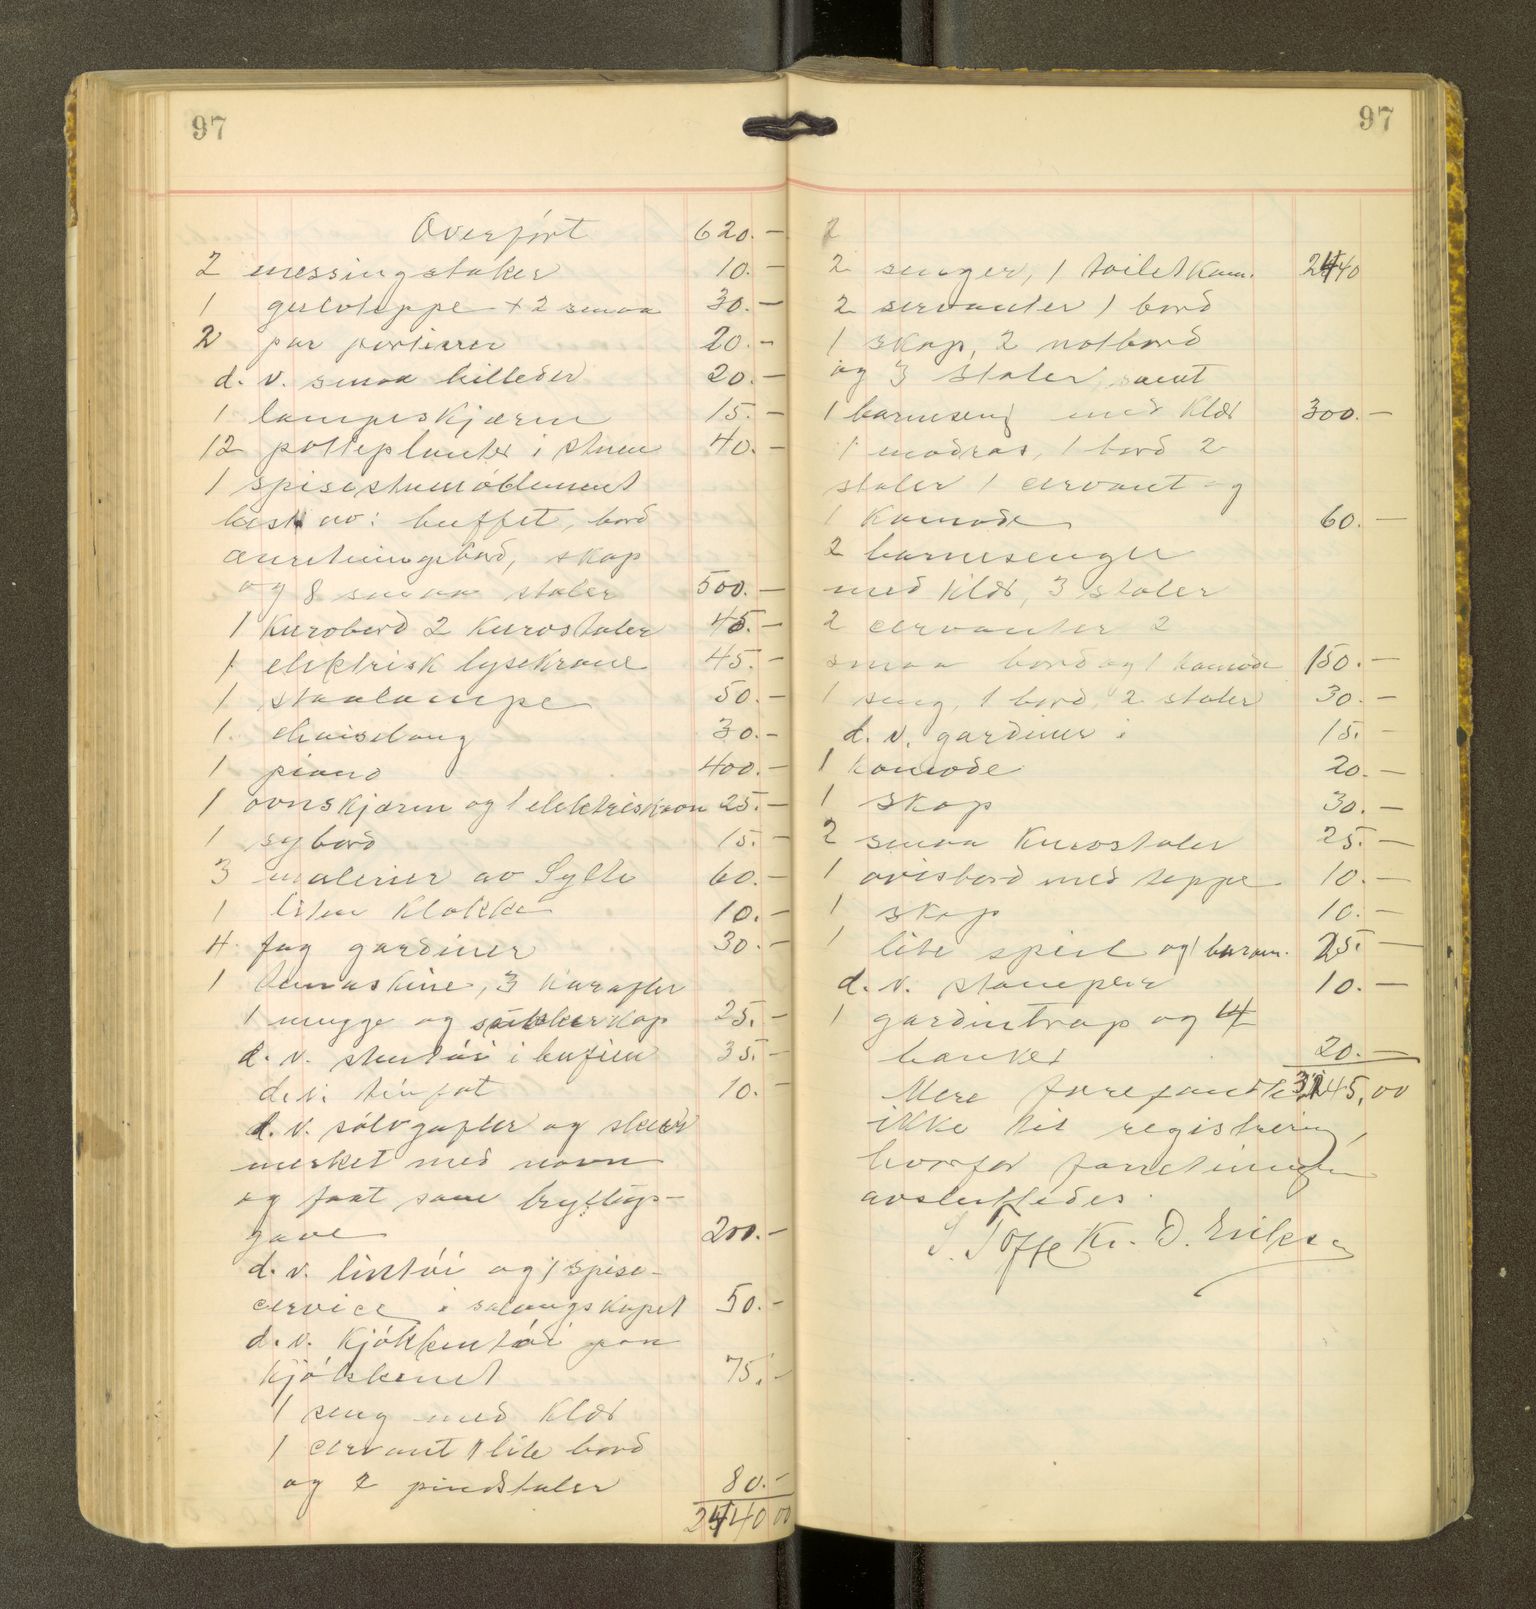 97
Overført 620.-
2 messingstaker 10.-
1 gulvteppe + 2 smaa 30.-
2 par portierer 20.-
d. v. smaa billeder 20.-
1 lampeskjærm 15.-
12 potteplanter i stuen 40.-
1 spisestuemøblement
best. av: buffet, bord
anretningsbord, skap
og 8 smaa stoler 500.-
1 kurvbord 2 kurvstoler 45.-
1 elektrisk lysekrone 45.-
1 staalampe 50.-
1 chaiselong 30.-
1 piano 400.-
1 ovnskjærm og 1 elektrisk ovn 25.-
1 sybord 15.-
3 malerier av Sylte 60.-
1 liten klokke 10.-
4 fag gardiner 30.-
1 temaskine, 3 karafler
1 mugge og sukkerkop 25.-
d. v. stentøi i bufeen 35.-
d. v. tinfat 10.-
d. v. sølvgafler og skeer
merket med navn
og faat som bryllups-
gave 200.-
d. v. lintøi og 1 spise-
cervice i salongskapet 50.-
d. v. kjøkkentøi paa
kjøkkenet 75.-
1 seng med klær
1 cervant 1 lite bord
og 2 pindstoler 80.-
2440 00
97
2
2 senger, 1 toiletkom. 2440
2 servanter 1 bord
1 skap, 2 natbord
og 3 stoler, samt
1 barneseng med klær 300.-
1 madras, 1 bord 2
stoler 1 cervant og
1 komode 60.-
2 barnesenger
med klær, 3 stoler
2 cervanter 2
smaa bord og 1 komode 150.-
1 seng, 1 bord, 2 stoler 30.-
d. v. gardiner i 15.-
1 komode 20.-
1 skap 30.-
2 smaa kurvstoler 25.-
1 avisbord med teppe 10.-
1 skap 10.-
1 lite speil og 1 barom. 25.-
d. v. stamper 10.-
1 gardintrap og 4
banker 20.-
Mere forefantes 3145,00
ikke til registrering,
hvorfor forretningen
avsluttedes.
S. Toffe Kr. D. Eriksen